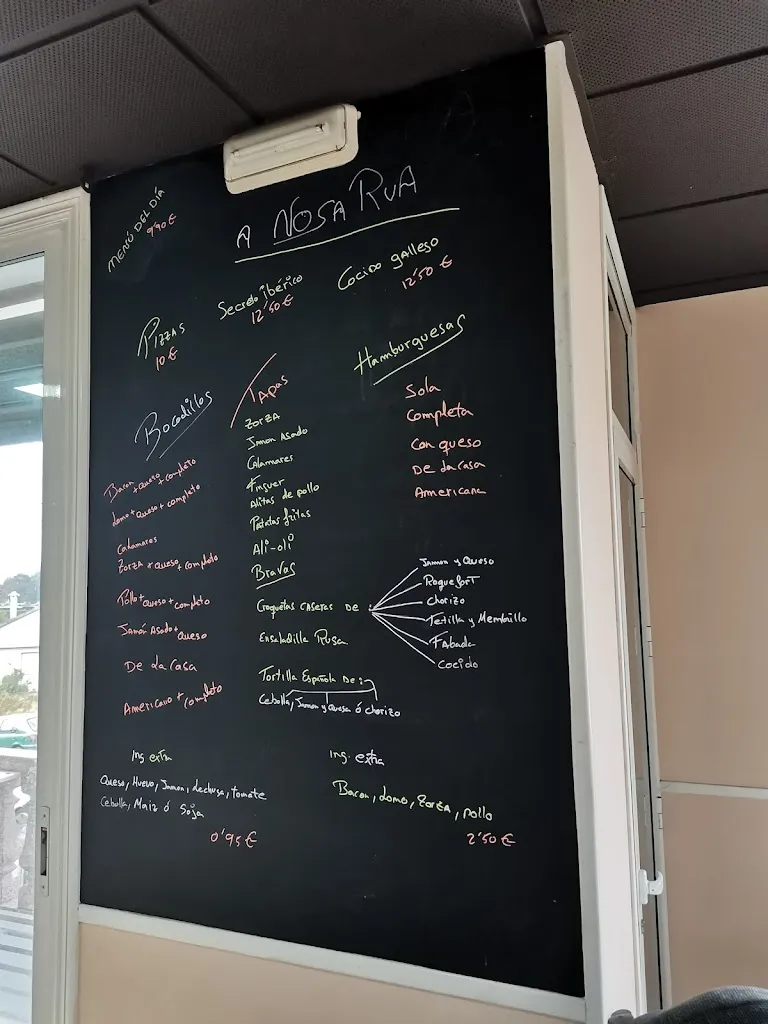 MENÚ DEL DÍA
9'90 €
A NOSA RUA
PIZZAS
10 €
Secreto ibérico
12'50 €
Cocido gallego
12'50 €
Bocadillos
Bacon + queso + completo
Lomo + queso + completo
Calamares
Zorza + queso + completo
Pollo + queso + completo
Jamón Asado + queso
De la casa
Americano + completo
TAPAS
ZORZA
Jamon Asado
Calamares
Finguer
Alitas de pollo
Patatas fritas
Ali-oli
Bravas
Croquetas caseras de :
Jamon y Queso
Roquefort
Chorizo
Tetilla y Membrillo
Fabada
Cocido
Ensaladilla Rusa
Tortilla Española De :
Cebolla, Jamon y Queso ó chorizo
Hamburguesas
Sola
Completa
Con queso
De la casa
Americana
Ing extra
Queso, Huevo, Jamon, Lechuga, tomate
Cebolla, Maiz ó Soja
0'95 €
Ing. extra
Bacon, Lomo, Zorza, pollo
2'50 €